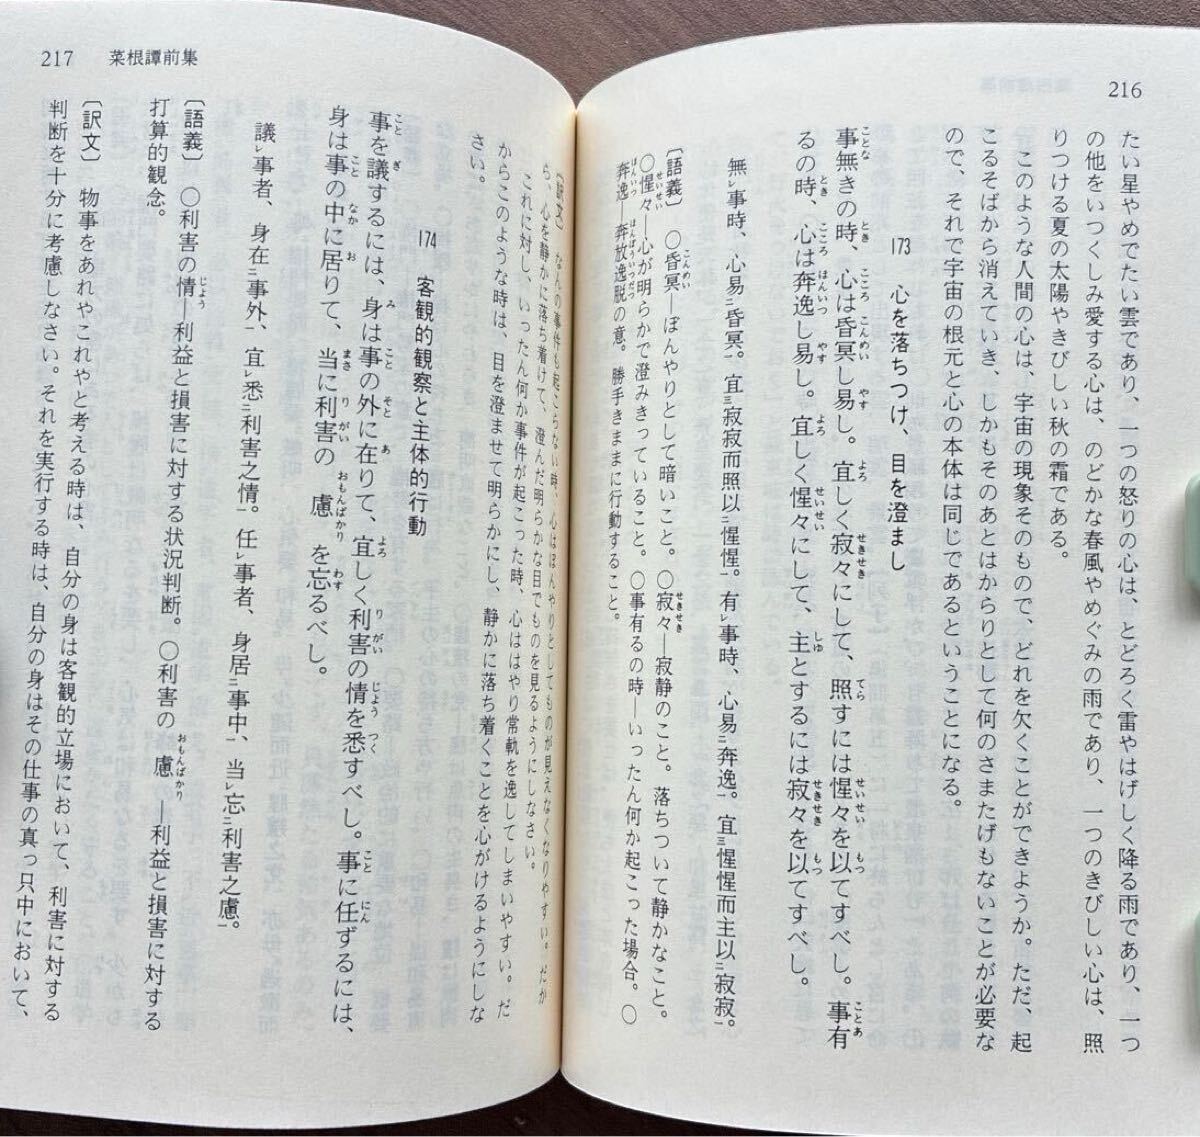 216
たい星やめでたい雲であり、一つの怒りの心は、とどろく雷やはげしく降る雨であり、一つ
の他をいつくしみ愛する心は、のどかな春風やめぐみの雨であり、一つのきびしい心は、照
りつける夏の太陽やきびしい秋の霜である。
このような人間の心は、宇宙の現象そのもので、どれを欠くことができようか。ただ、起
こるそばから消えていき、しかもそのあとはからりとして何のさまたげもないことが必要な
ので、それで宇宙の根元と心の本体は同じであるということになる。
173 心を落ちつけ、目を澄まし
事無きの時、心は昏冥し易し。宜しく寂々にして、照すには惺々を以てすべし。事有
るの時、心は奔逸し易し。宜しく惺々にして、主とするには寂々を以てすべし。
無レ事時、心易二昏冥一。宜三寂寂而照以二惺惺一。有レ事時、心易二奔逸一。宜三惺惺而主以二寂寂一。
〔語義〕 ○昏冥―ぼんやりとして暗いこと。○寂々―寂静のこと。落ちついて静かなこと。
○惺々―心が明らかで澄みきっていること。○事有るの時―いったん何か起こった場合。○
奔逸―奔放逸脱の意。勝手きままに行動すること。
〔訳文〕 なんの事件も起こらない時、心はぼんやりとしてものが見えなくなりやすい。だか
ら、心を静かに落ち着けて、澄んだ明らかな目でものを見るようにしなさい。
これに対し、いったん何か事件が起こった時、心ははやり常軌を逸してしまいやすい。だ
からこのような時は、目を澄ませて明らかにし、静かに落ち着くことを心がけるようにしな
さい。
217 菜根譚前集
174 客観的観察と主体的行動
事を議するには、身は事の外に在りて、宜しく利害の情を悉すべし。事に任ずるには、
身は事の中に居りて、当に利害の慮を忘るべし。
議レ事者、身在二事外一、宜レ悉二利害之情一。任レ事者、身居二事中一、当レ忘二利害之慮一。
〔語義〕 ○利害の情―利益と損害に対する状況判断。○利害の慮―利益と損害に対する
打算的観念。
〔訳文〕 物事をあれやこれやと考える時は、自分の身は客観的立場において、利害に対する
判断を十分に考慮しなさい。それを実行する時は、自分の身はその仕事の真っ只中において、